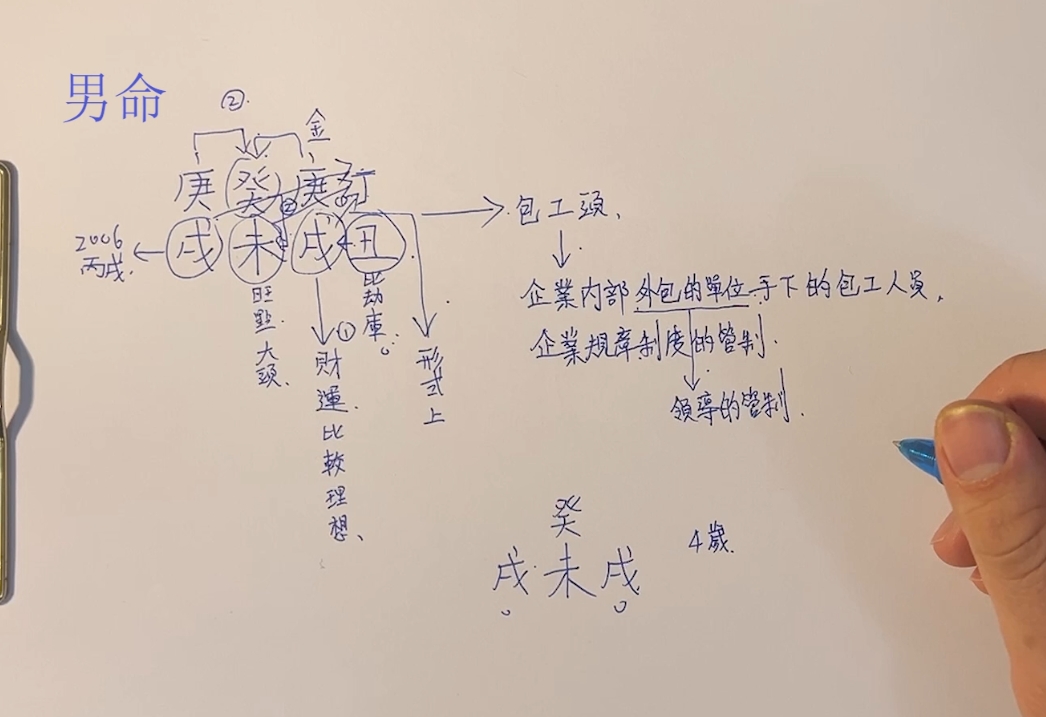 男命
②
金
庚 癸 庚
戌 未 戌 丑
2006
丙戌
旺
大頭、
①
財運比較理想、
比劫庫
形式上
包工頭、
企業內部外包的單位手下的包工人員,
企業規章制度的管制
領導的管制
癸
戌 未 戌
4歲